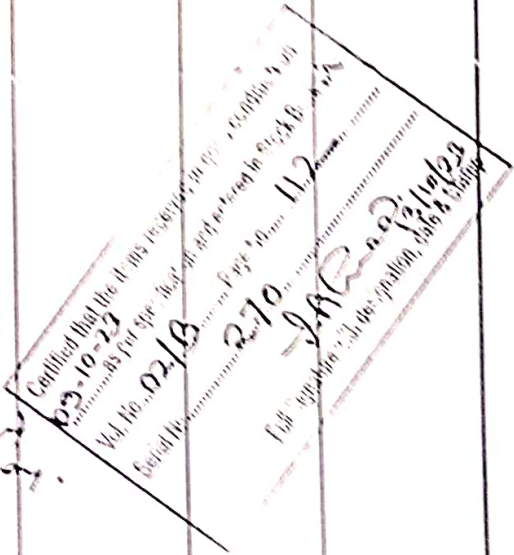 Certified that the items received in good condition on
09-10-23 as per specification and entered in Stock Book
Vol. No. 02/B Page No. 112
Serial No. 270
12/10/23
Full Signature with designation, date & status